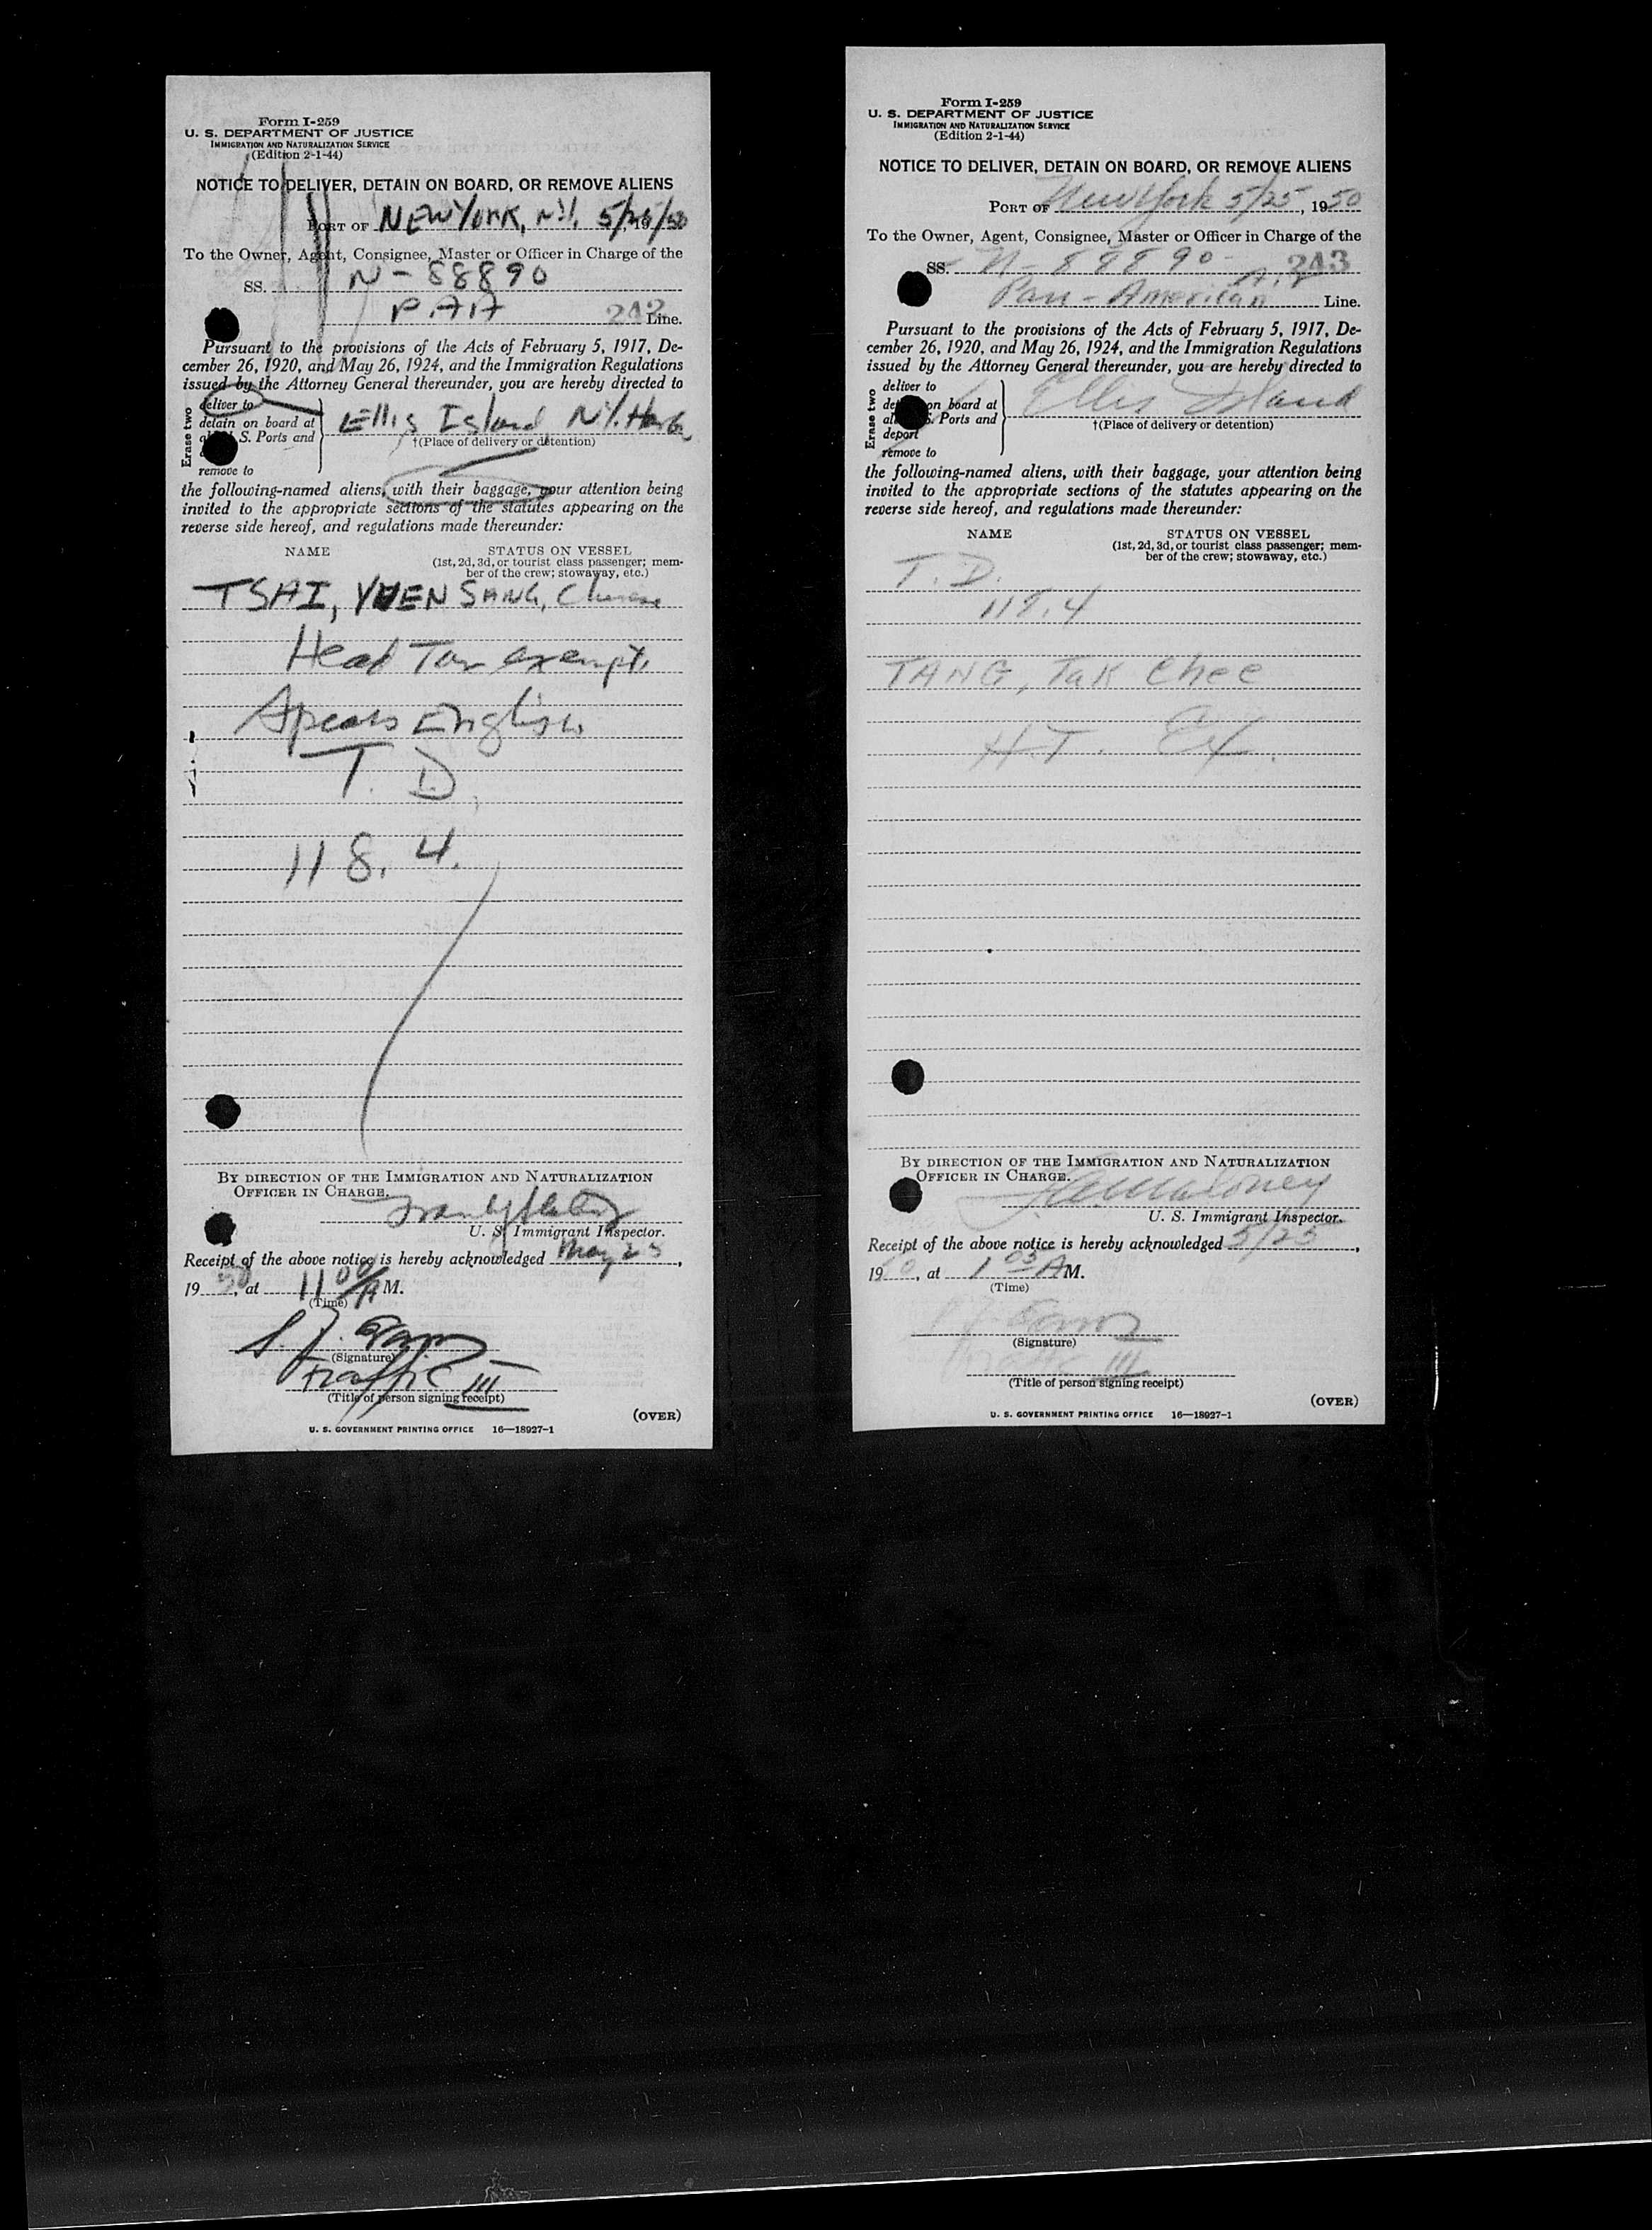 Form I-259
U. S. DEPARTMENT OF JUSTICE
IMMIGRATION AND NATURALIZATION SERVICE
(Edition 2-1-44)
NOTICE TO DELIVER, DETAIN ON BOARD, OR REMOVE ALIENS
PORT OF NEW YORK, N.Y. 5/25/50
To the Owner, Agent, Consignee, Master or Officer in Charge of the
SS. N-88890
P.A.A 242 Line.
Pursuant to the provisions of the Acts of February 5, 1917, De-
cember 26, 1920, and May 26, 1924, and the Immigration Regulations
issued by the Attorney General thereunder, you are hereby directed to
Erase two
deliver to
detain on board at
S. Ports and
remove to
Ellis Island, N.Y. Harbor
†(Place of delivery or detention)
the following-named aliens, with their baggage, your attention being
invited to the appropriate sections of the statutes appearing on the
reverse side hereof, and regulations made thereunder:
NAME STATUS ON VESSEL
(1st, 2d, 3d, or tourist class passenger; mem-
ber of the crew; stowaway, etc.)
TSAI, YUEN SANG, Chinese
Head Tax exempt.
Speaks English.
T. D.
118.4.
BY DIRECTION OF THE IMMIGRATION AND NATURALIZATION
OFFICER IN CHARGE.
U. S. Immigrant Inspector.
Receipt of the above notice is hereby acknowledged May 25,
1950, at 11 00/AM.
(Time)
S. J.
(Signature)
Traffic III
(Title of person signing receipt)
(OVER)
U. S. GOVERNMENT PRINTING OFFICE 16—18927-1
Form I-259
U. S. DEPARTMENT OF JUSTICE
IMMIGRATION AND NATURALIZATION SERVICE
(Edition 2-1-44)
NOTICE TO DELIVER, DETAIN ON BOARD, OR REMOVE ALIENS
PORT OF New York 5/25, 1950
To the Owner, Agent, Consignee, Master or Officer in Charge of the
SS. N-88890- 243
Pan-American Air Line.
Pursuant to the provisions of the Acts of February 5, 1917, De-
cember 26, 1920, and May 26, 1924, and the Immigration Regulations
issued by the Attorney General thereunder, you are hereby directed to
Erase two
deliver to
on board at
S. Ports and
deport
remove to
Ellis Island
†(Place of delivery or detention)
the following-named aliens, with their baggage, your attention being
invited to the appropriate sections of the statutes appearing on the
reverse side hereof, and regulations made thereunder:
NAME STATUS ON VESSEL
(1st, 2d, 3d, or tourist class passenger; mem-
ber of the crew; stowaway, etc.)
T. D.
118.4
TANG, Tak Chee
H.T. Ex.
BY DIRECTION OF THE IMMIGRATION AND NATURALIZATION
OFFICER IN CHARGE.
Maloney
U. S. Immigrant Inspector.
Receipt of the above notice is hereby acknowledged 5/25,
1950, at 1 05 AM.
(Time)
(Signature)
Traffic III
(Title of person signing receipt)
(OVER)
U. S. GOVERNMENT PRINTING OFFICE 16—18927-1